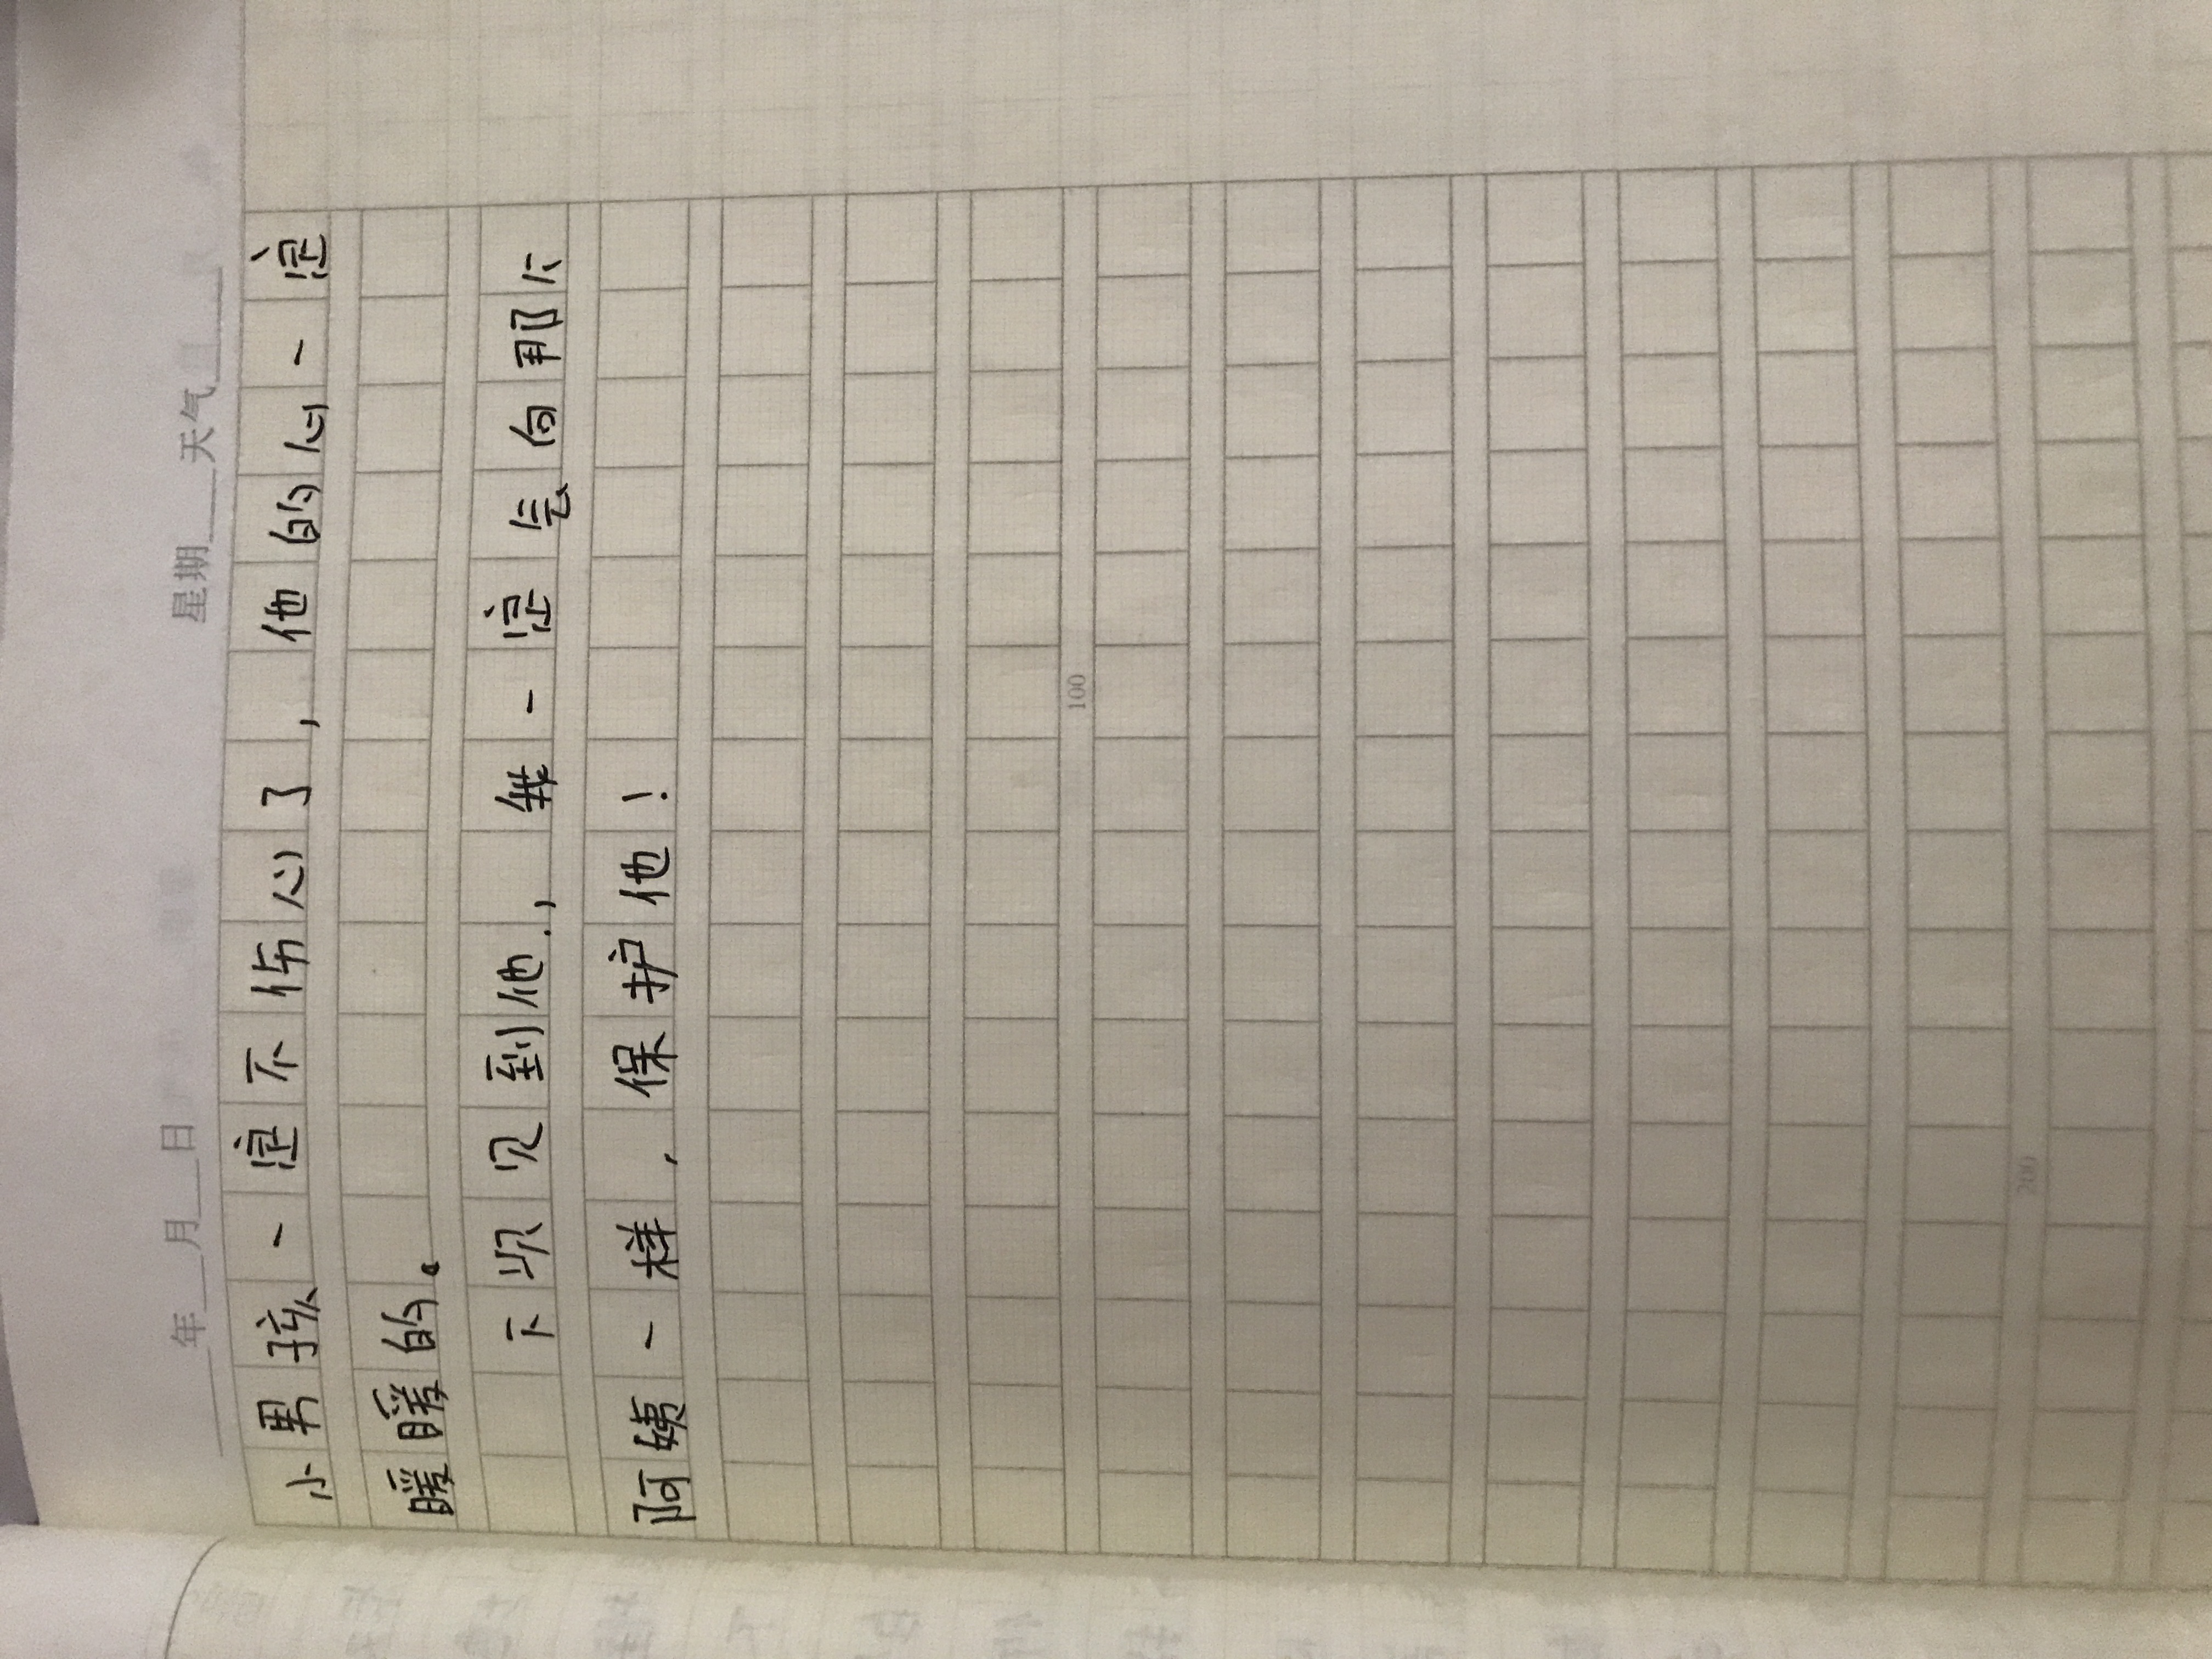 年 月 日 星期 天气
小男孩一定不伤心了，他的心一定
暖暖的。
下次见到他，我一定会向那个
阿姨一样，保护他！
100
200